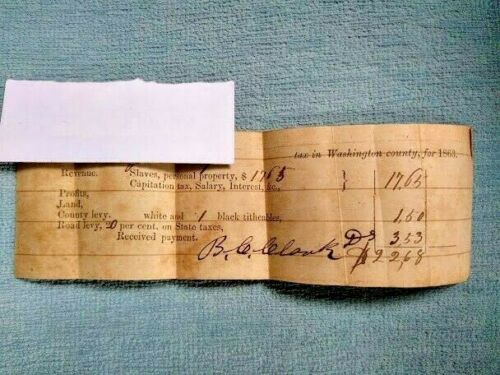 tax in Washington county, for 1863.
Revenue. Slaves, personal property, $ 1765 } 17,65
Capitation tax, Salary, Interest, &c.,
Profits,
Land,
County levy. white and 1 black titheables, 1,50
Road levy, 20 per cent. on State taxes, 3,53
Received payment. B. C. Clark $22,68